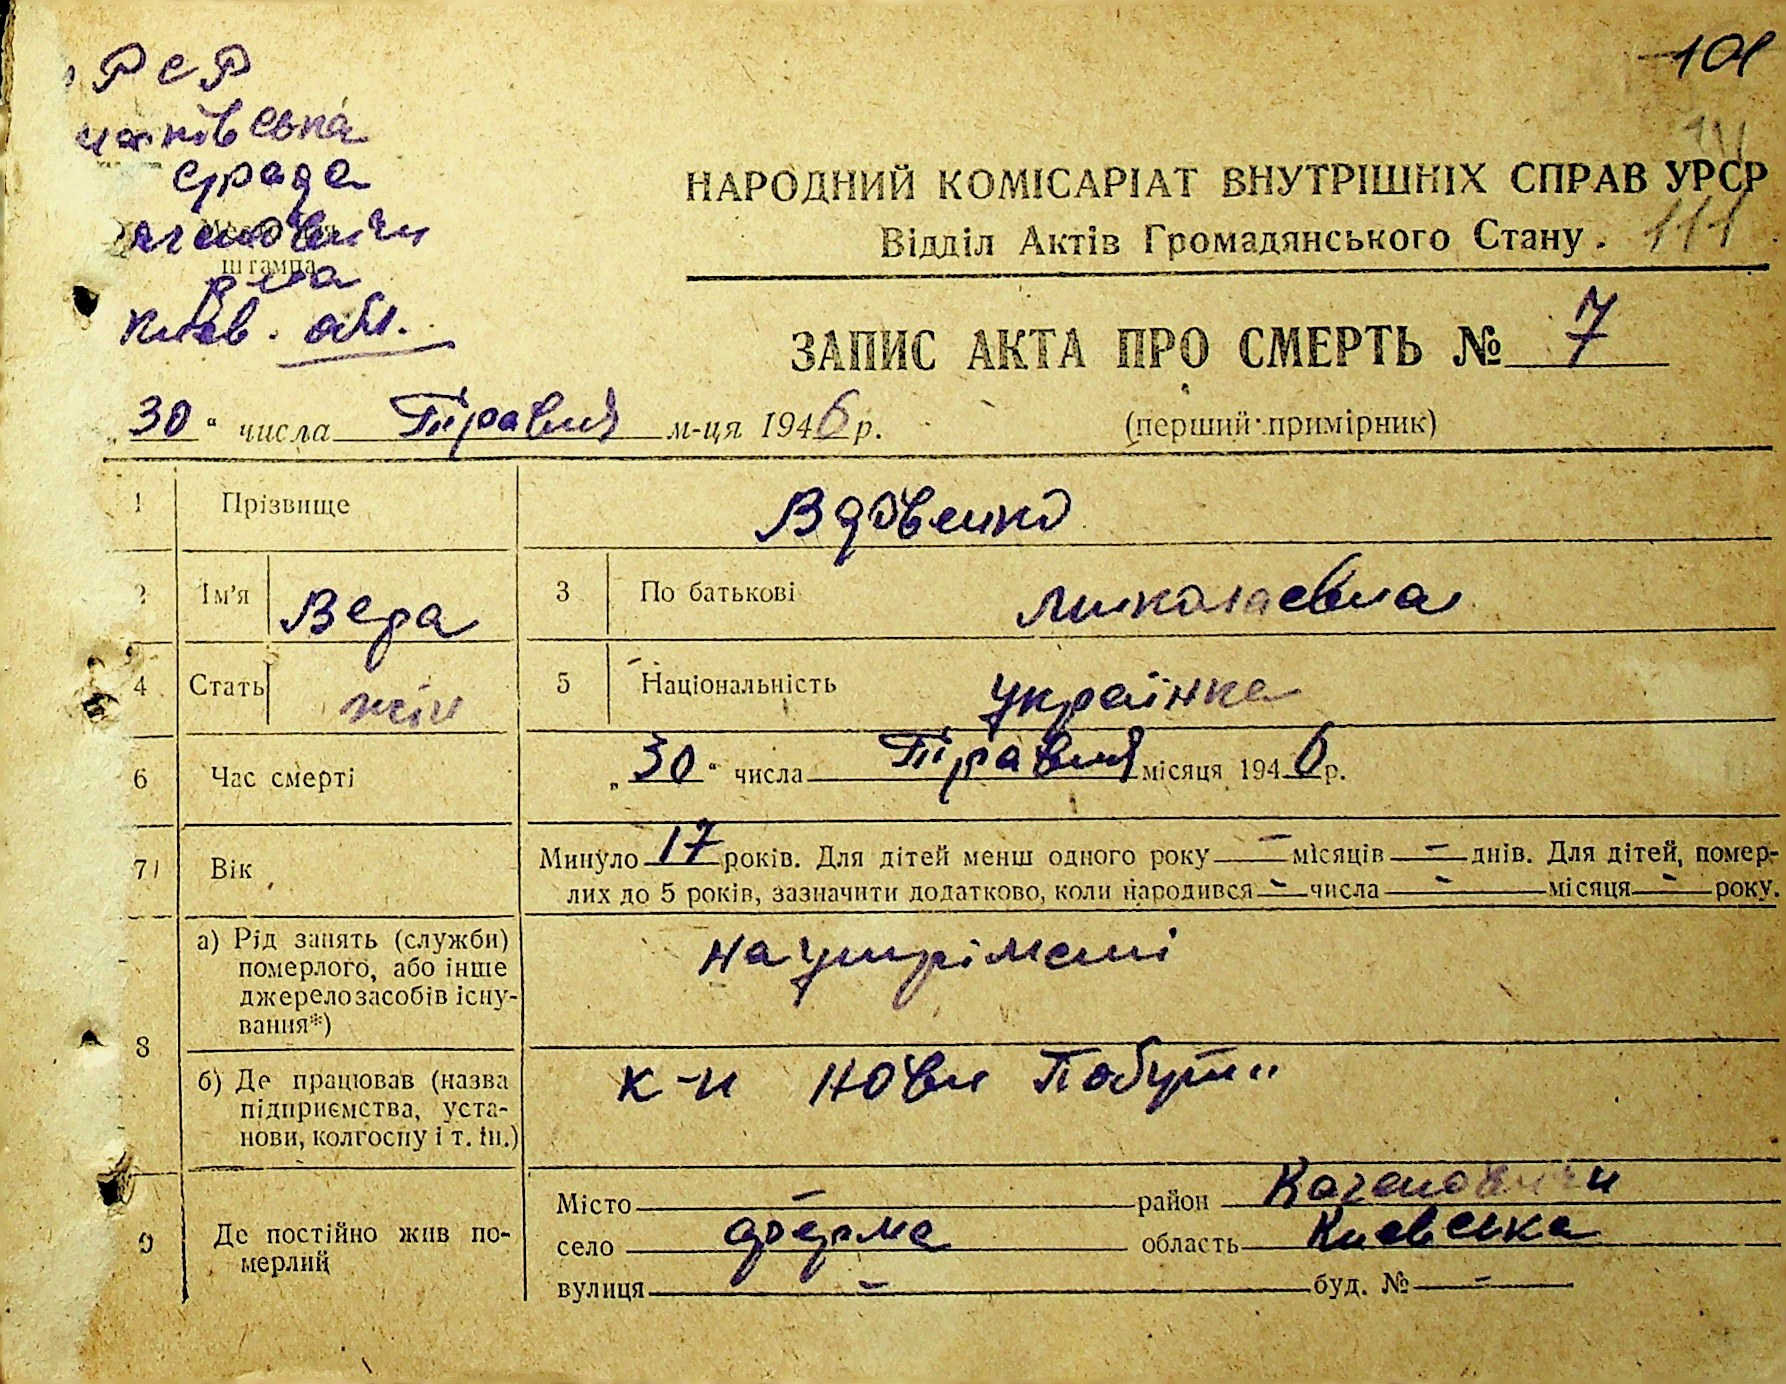 РСР
101
с/рада
111
Місце
штампа
р-на
Киев. обл.
НАРОДНИЙ КОМІСАРІАТ ВНУТРІШНІХ СПРАВ УРСР
Відділ Актів Громадянського Стану.
ЗАПИС АКТА ПРО СМЕРТЬ № 7
„30“ числа Травня м-ця 1946 р.
(перший примірник)
1 Прізвище Вдовенко
2 Ім'я Вера 3 По батькові Миколаевна
4 Стать жін 5 Національність українка
6 Час смерті „30“ числа Травня місяця 1946 р.
7 Вік Минуло 17 років. Для дітей менш одного року — місяців — днів. Для дітей, помер-
лих до 5 років, зазначити додатково, коли народився — числа — місяця — року.
8 а) Рід занять (служби)
померлого, або інше
джерело засобів існу-
вання*)
на утрімані
б) Де працював (назва
підприємства, уста-
нови, колгоспу і т. ін.)
к-п Нови Побут"
9 Де постійно жив по-
мерлий
Місто — район Кагановичи
село ферма область Киевська
вулиця — буд. № —